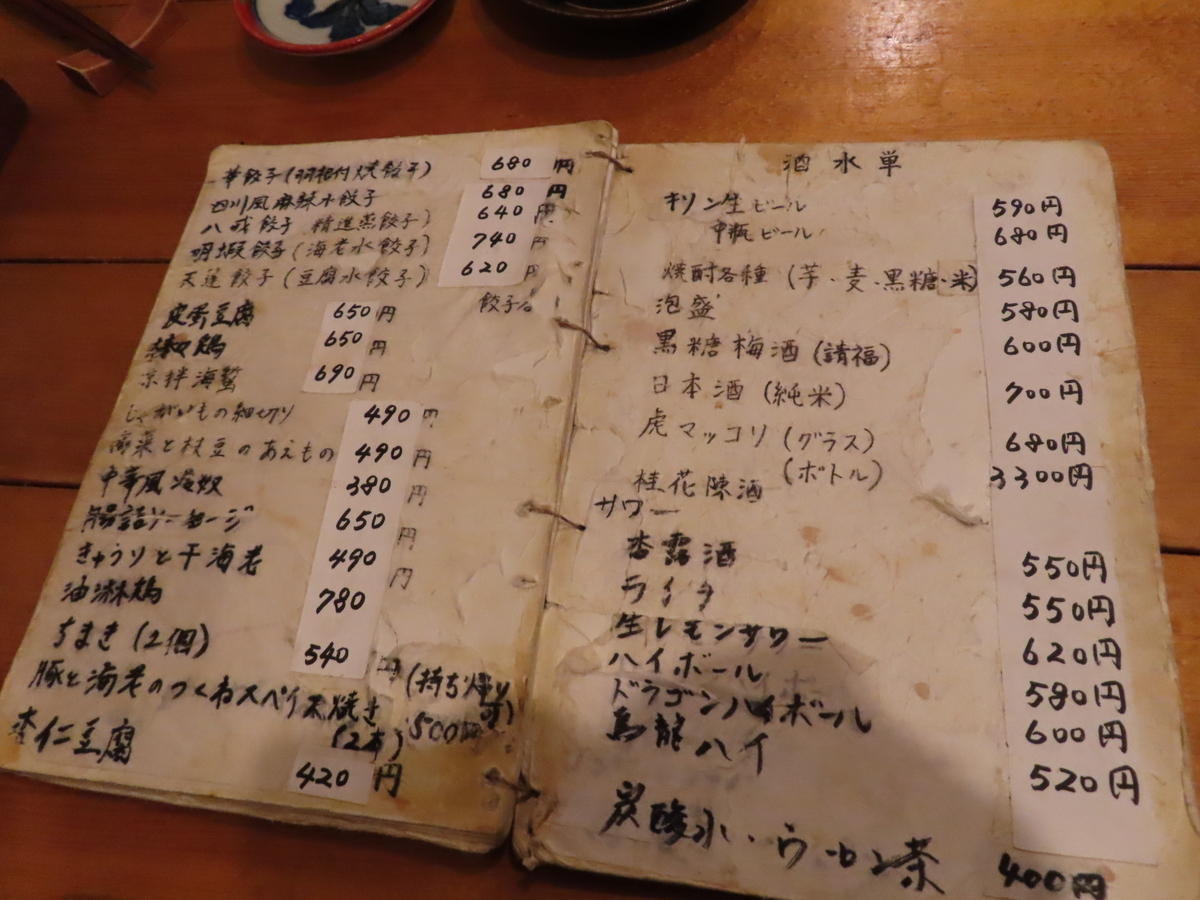 華餃子(羽根付焼餃子) 680円
四川風麻辣水餃子 680円
八戒餃子 精進蒸餃子) 640円
明蝦餃子(海老水餃子) 740円
天蓮餃子(豆腐水餃子) 620円
餃子
皮蛋豆腐 650円
椒麻鶏 650円
涼拌海蜇 690円
じゃがいもの細切り 490円
高菜と枝豆のあえもの 490円
中華風冷奴 380円
腸詰ソーセージ 650円
きゅうりと干海老 490円
油淋鶏 780
ちまき(2個) 540円 (持ち帰り可)
豚と海老のつくねスペイス焼き(2本) 500円
杏仁豆腐 420円
酒水単
キリン生ビール 590円
中瓶ビール 680円
焼酎各種(芋・麦・黒糖・米) 560円
泡盛 580円
黒糖梅酒(請福) 600円
日本酒(純米) 700円
虎マッコリ(グラス) 680円
(ボトル) 3300円
桂花陳酒
サワー
杏露酒 550円
ライチ 550円
生レモンサワー 620円
ハイボール 580円
ドラゴンハイボール 600円
烏龍ハイ 520円
炭酸水・ウーロン茶 400円